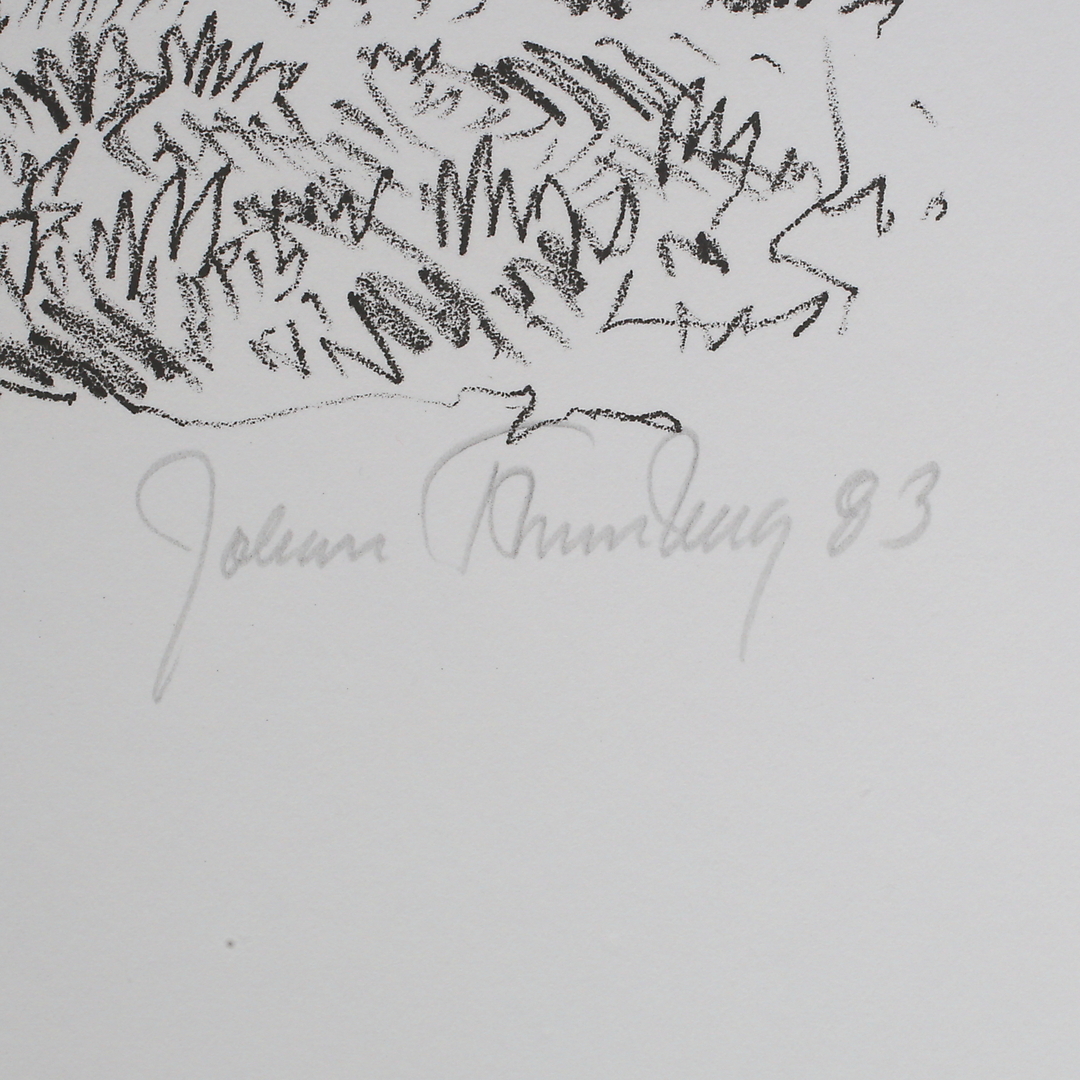 Johan Thunberg 83